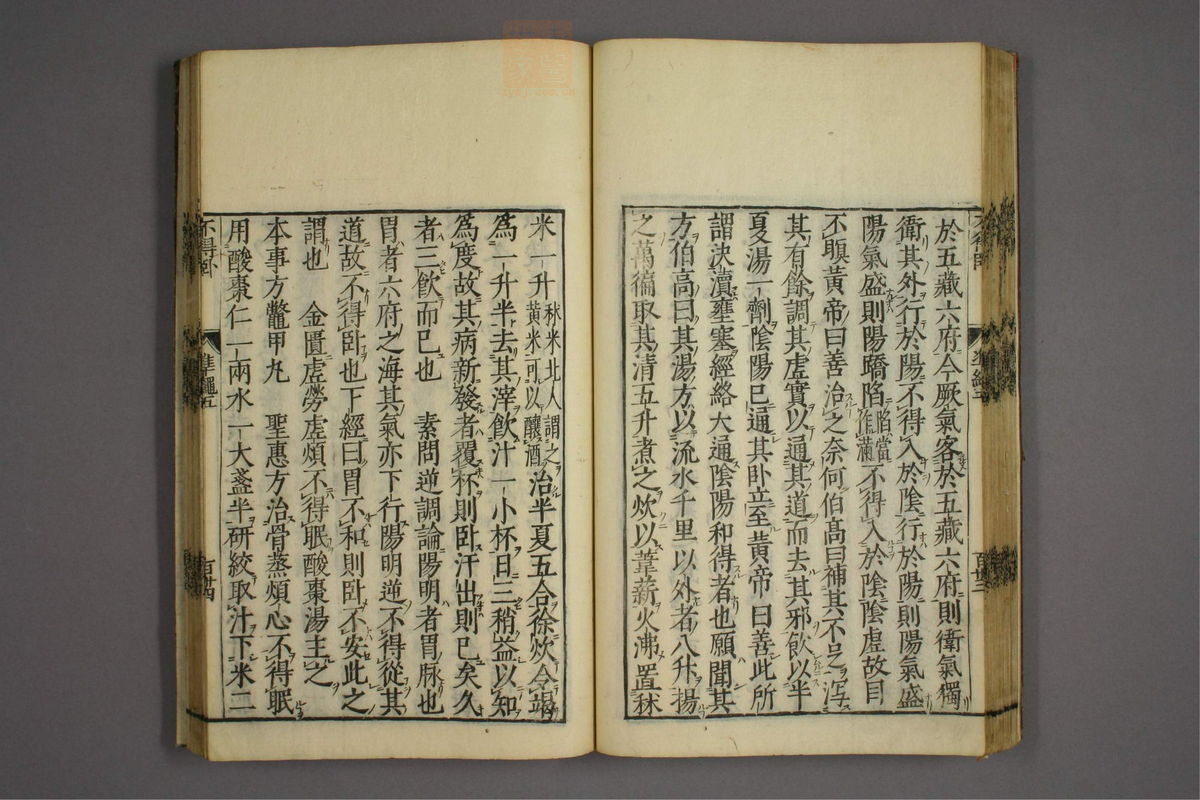 於五藏六府今厥氣客於五藏六府則衛氣獨
衛其外行於陽不得入於陰行於陽則陽氣盛
陽氣盛則陽蹻陷陷當作滿不得入於陰陰虛故目
不瞑黃帝曰善治之奈何伯髙曰補其不足瀉
其有餘調其虛實以通其道而去其邪飲以半
夏湯一劑陰陽已通其卧立至黃帝曰善此所
謂决瀆壅塞經絡大通陰陽和得者也願聞其
方伯高曰其湯方以流水千里以外者八升揚
之萬徧取其清五升煮之炊以葦薪火沸置秫
米一升秫米北人謂之黃米可以釀酒治半夏五合徐炊令竭
為一升半去其滓飲汁一小杯日三稍益以知
為度故其病新發者覆杯則卧汗出則已矣久
者三飲而已也　素問逆調論陽明者胃脉也
胃者六府之海其氣亦下行陽明逆不得從其
道故不得卧也下經曰胃不和則卧不安此之
謂也　金匱虛勞虛煩不得眠酸棗湯主之
本事方鼈甲丸　聖惠方治骨蒸煩心不得眠
用酸棗仁一兩水一大盞半研絞取汁下米二
不得卧
準繩五
百卅四